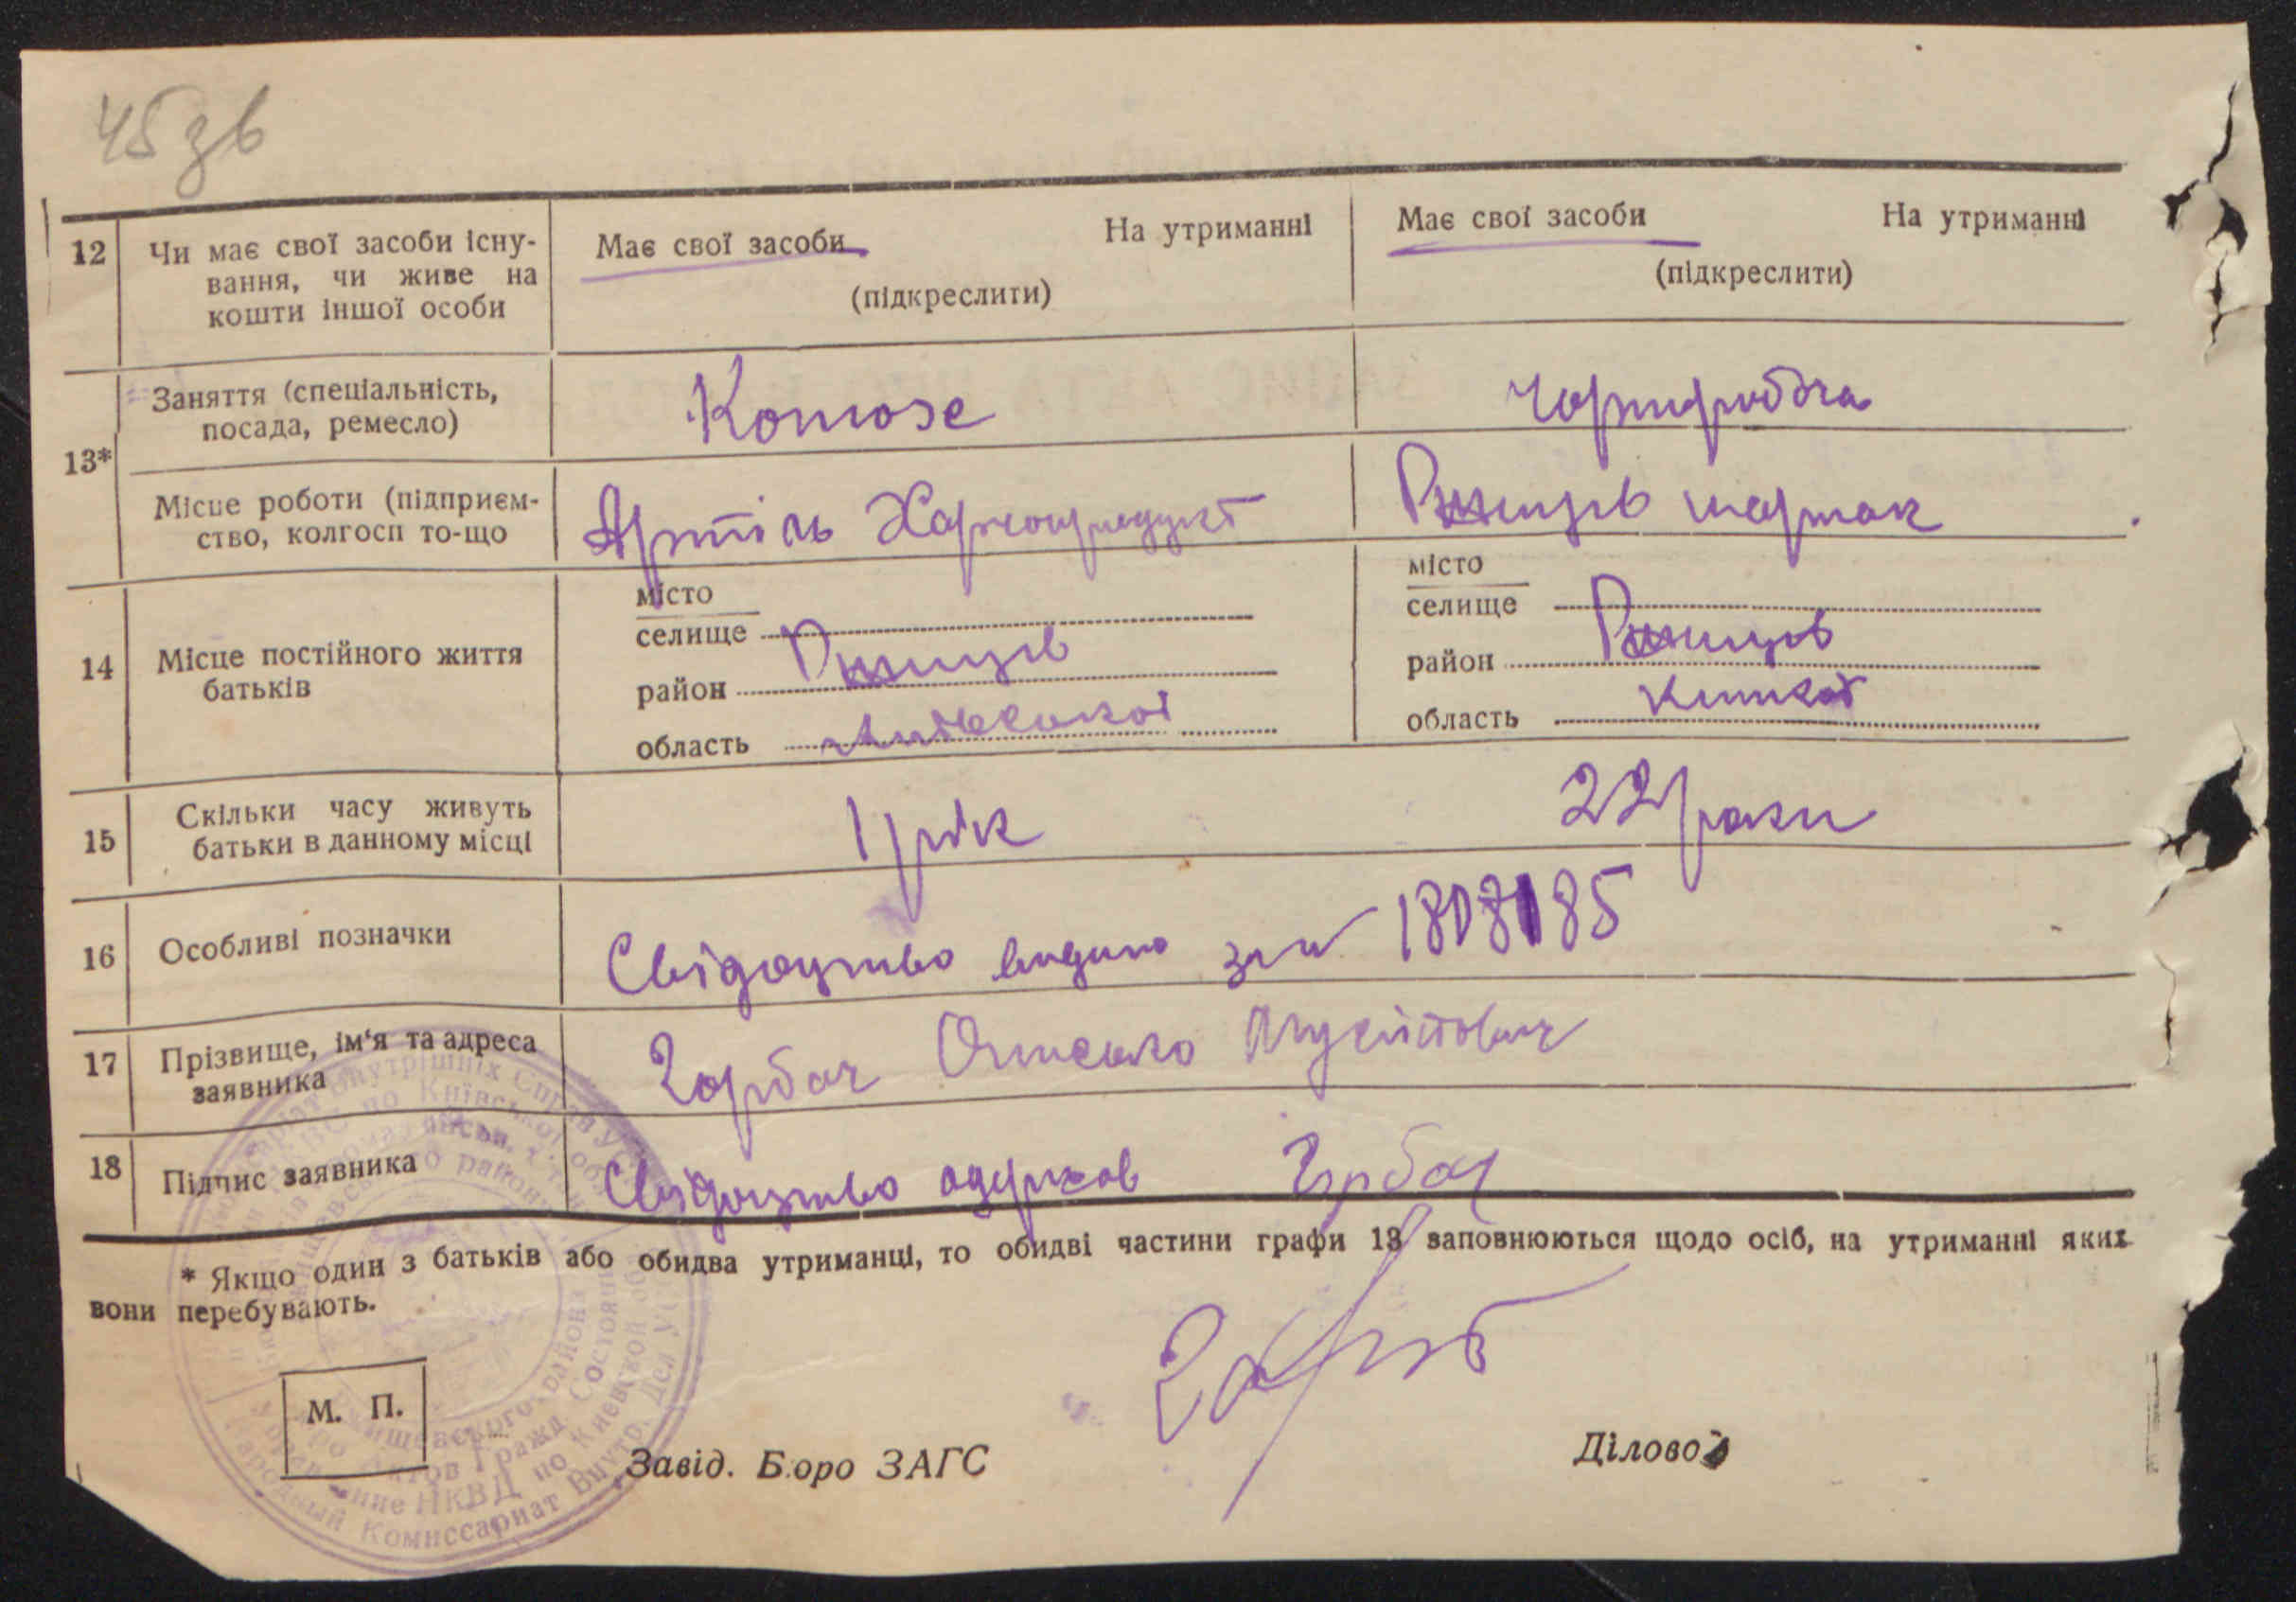 45 зв
12 Чи має свої засоби існу-
вання, чи живе на
кошти іншої особи
Має свої засоби На утриманні
(підкреслити)
Має свої засоби На утриманні
(підкреслити)
13*
Заняття (спеціальність,
посада, ремесло)
Конюх
Чорноробоча
Місце роботи (підприєм-
ство, колгосп то-що
Артіль Харчопродукт
Ржищів
14 Місце постійного життя
батьків
місто
селище
район Ржищів
область
місто
селище
район Ржищів
область
15 Скільки часу живуть
батьки в данному місці
1 рік
22 роки
16 Особливі позначки
Свідоцтво видано за №
17 Прізвище, ім'я та адреса
заявника
Горбач
18 Підпис заявника
Свідоцтво одержав Горбач
* Якщо один з батьків або обидва утриманці, то обидві частини графи 13 заповнюються щодо осіб, на утриманні яких
вони перебувають.
М. П.
Завід. Бюро ЗАГС
Діловод
Народный Комиссариат Внутр. Дел
НКВД по Киевской